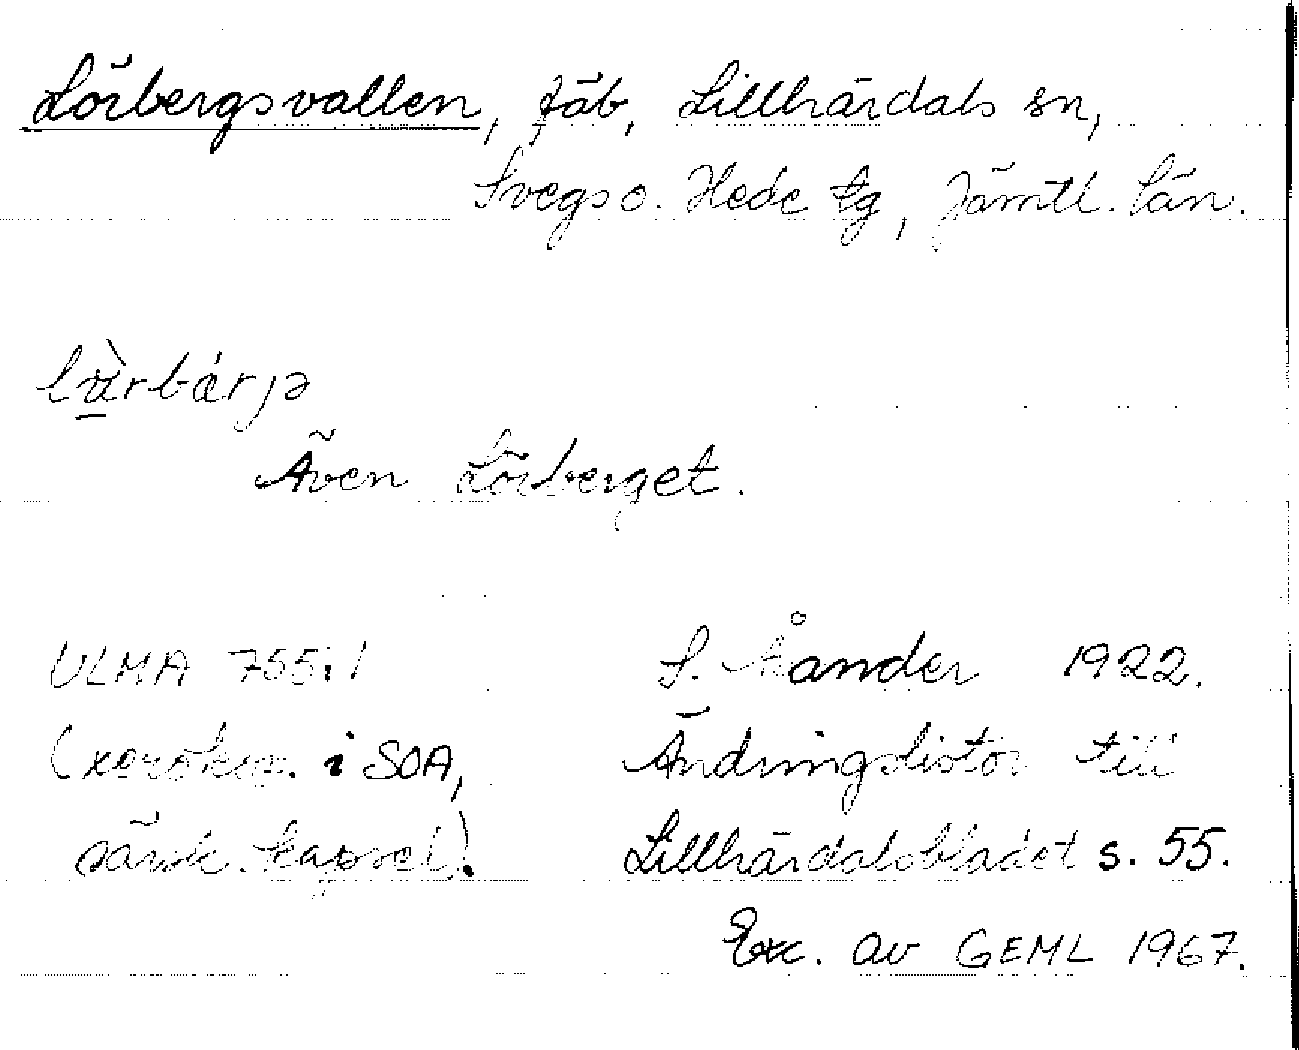 Lörbergsvallen, fäb, Lillhärdals sn,
Svegs o. Hede tg, Jämtl. län.
Även Lörberget.
ULMA 755:1 S. Ålander 1922.
(xerokop. i SOA, Ändringslistor till
särsk. kapsel). Lillhärdalsbladet s. 55.
Exc. av GEML 1967.